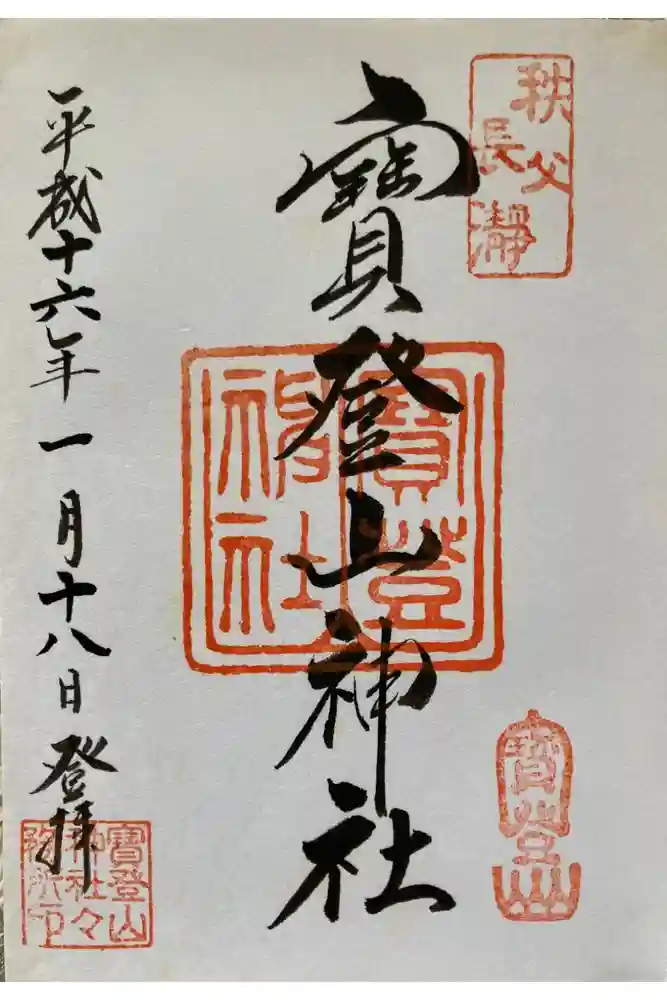 秩父
長瀞
寶登山神社
寶登
神社
寶登山
平成十六年一月十八日登拝
寶登山
神社々
務所印